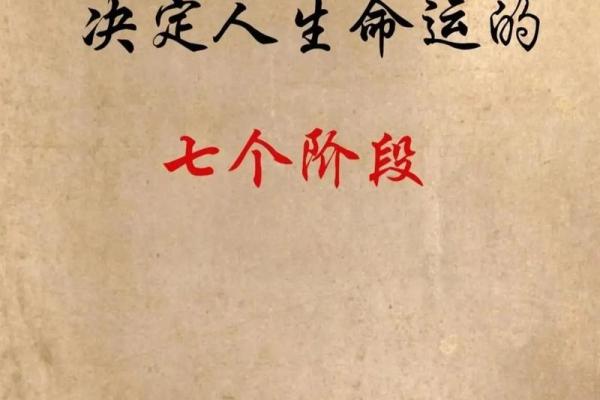 决定人生命运的
七个阶段